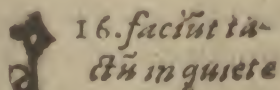 16. faciūt ta-
ctū in quiete